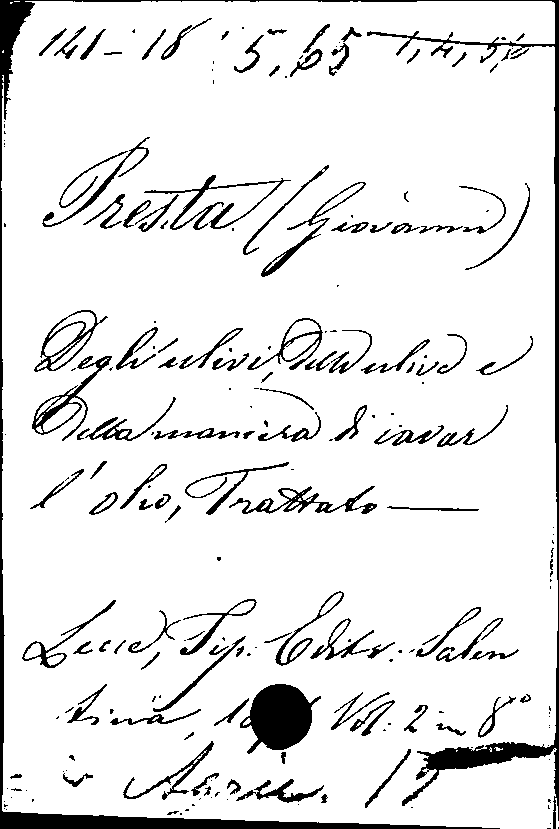 141-18 5,65 1,4,5,6
Presta (Giovanni)
Degli ulivi, delle ulive e
della maniera di cavar
l'olio, Trattato —
Lecce, Tip. Editr. Salen
tina, Vol. 2 in 8°
Agric.